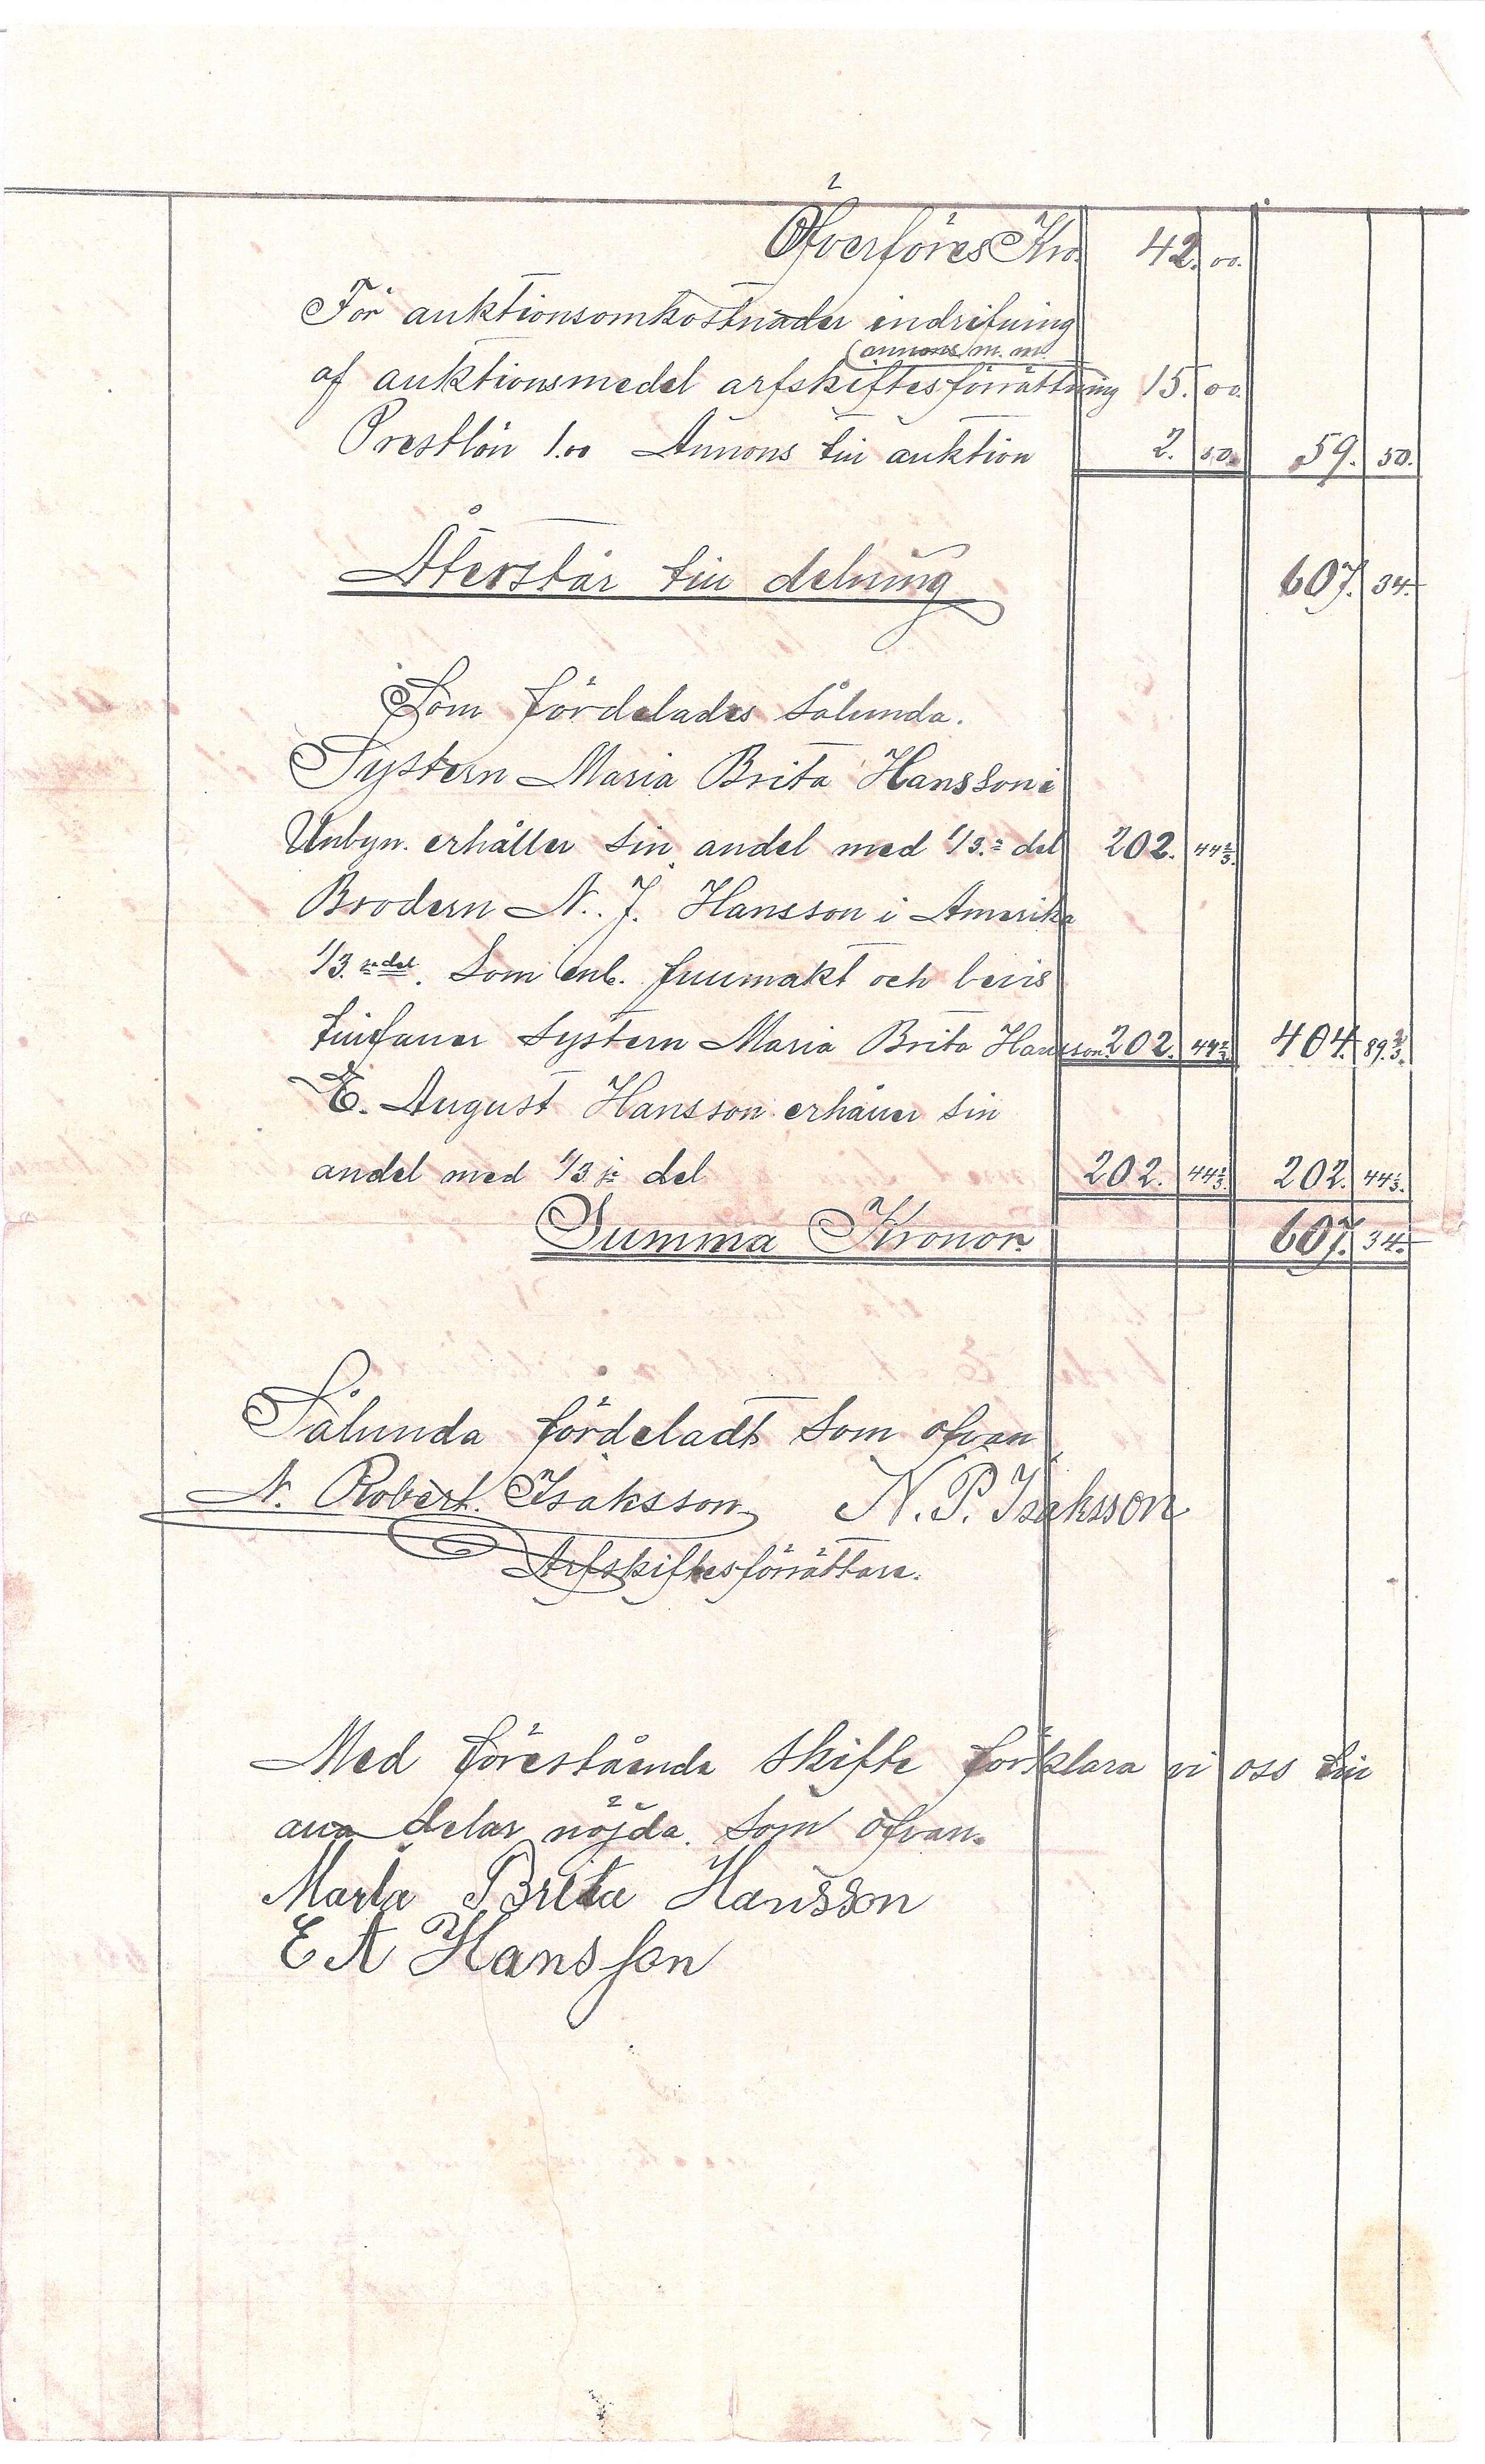 Öfverföres Kr. 42. 00.
För auktionsomkostnader indrifning
(annons m. m.
af auktionsmedel arfskiftesförrättning 15. 00.
Prestlön 1.00 Annons till auktion 2. 50. 59. 50.
Återstår till delning 607. 34.
Som fördelades sålunda.
Systern Maria Brita Hansson i
Unbyn. erhåller sin andel med 1/3.= del 202. 44 2/3.
Brodern N. J. Hansson i Amerika
1/3 del. Som enl. fullmakt och bevis
tillfaller systern Maria Brita Hansson 202. 44 2/3. 404. 89. 2/3.
E. August Hansson erhåller sin
andel med 1/3 je del 202. 44 2/3. 202. 44 2/3.
Summa Kronor 607. 34.
Sålunda fördeladt som ofvan
N. Robert. Isaksson. N. P. Isaksson
Arfskiftesförrättare.
Med förestående skifte förklara vi oss till
alla delar nöjda. som ofvan.
Maria Brita Hansson
E A Hansson